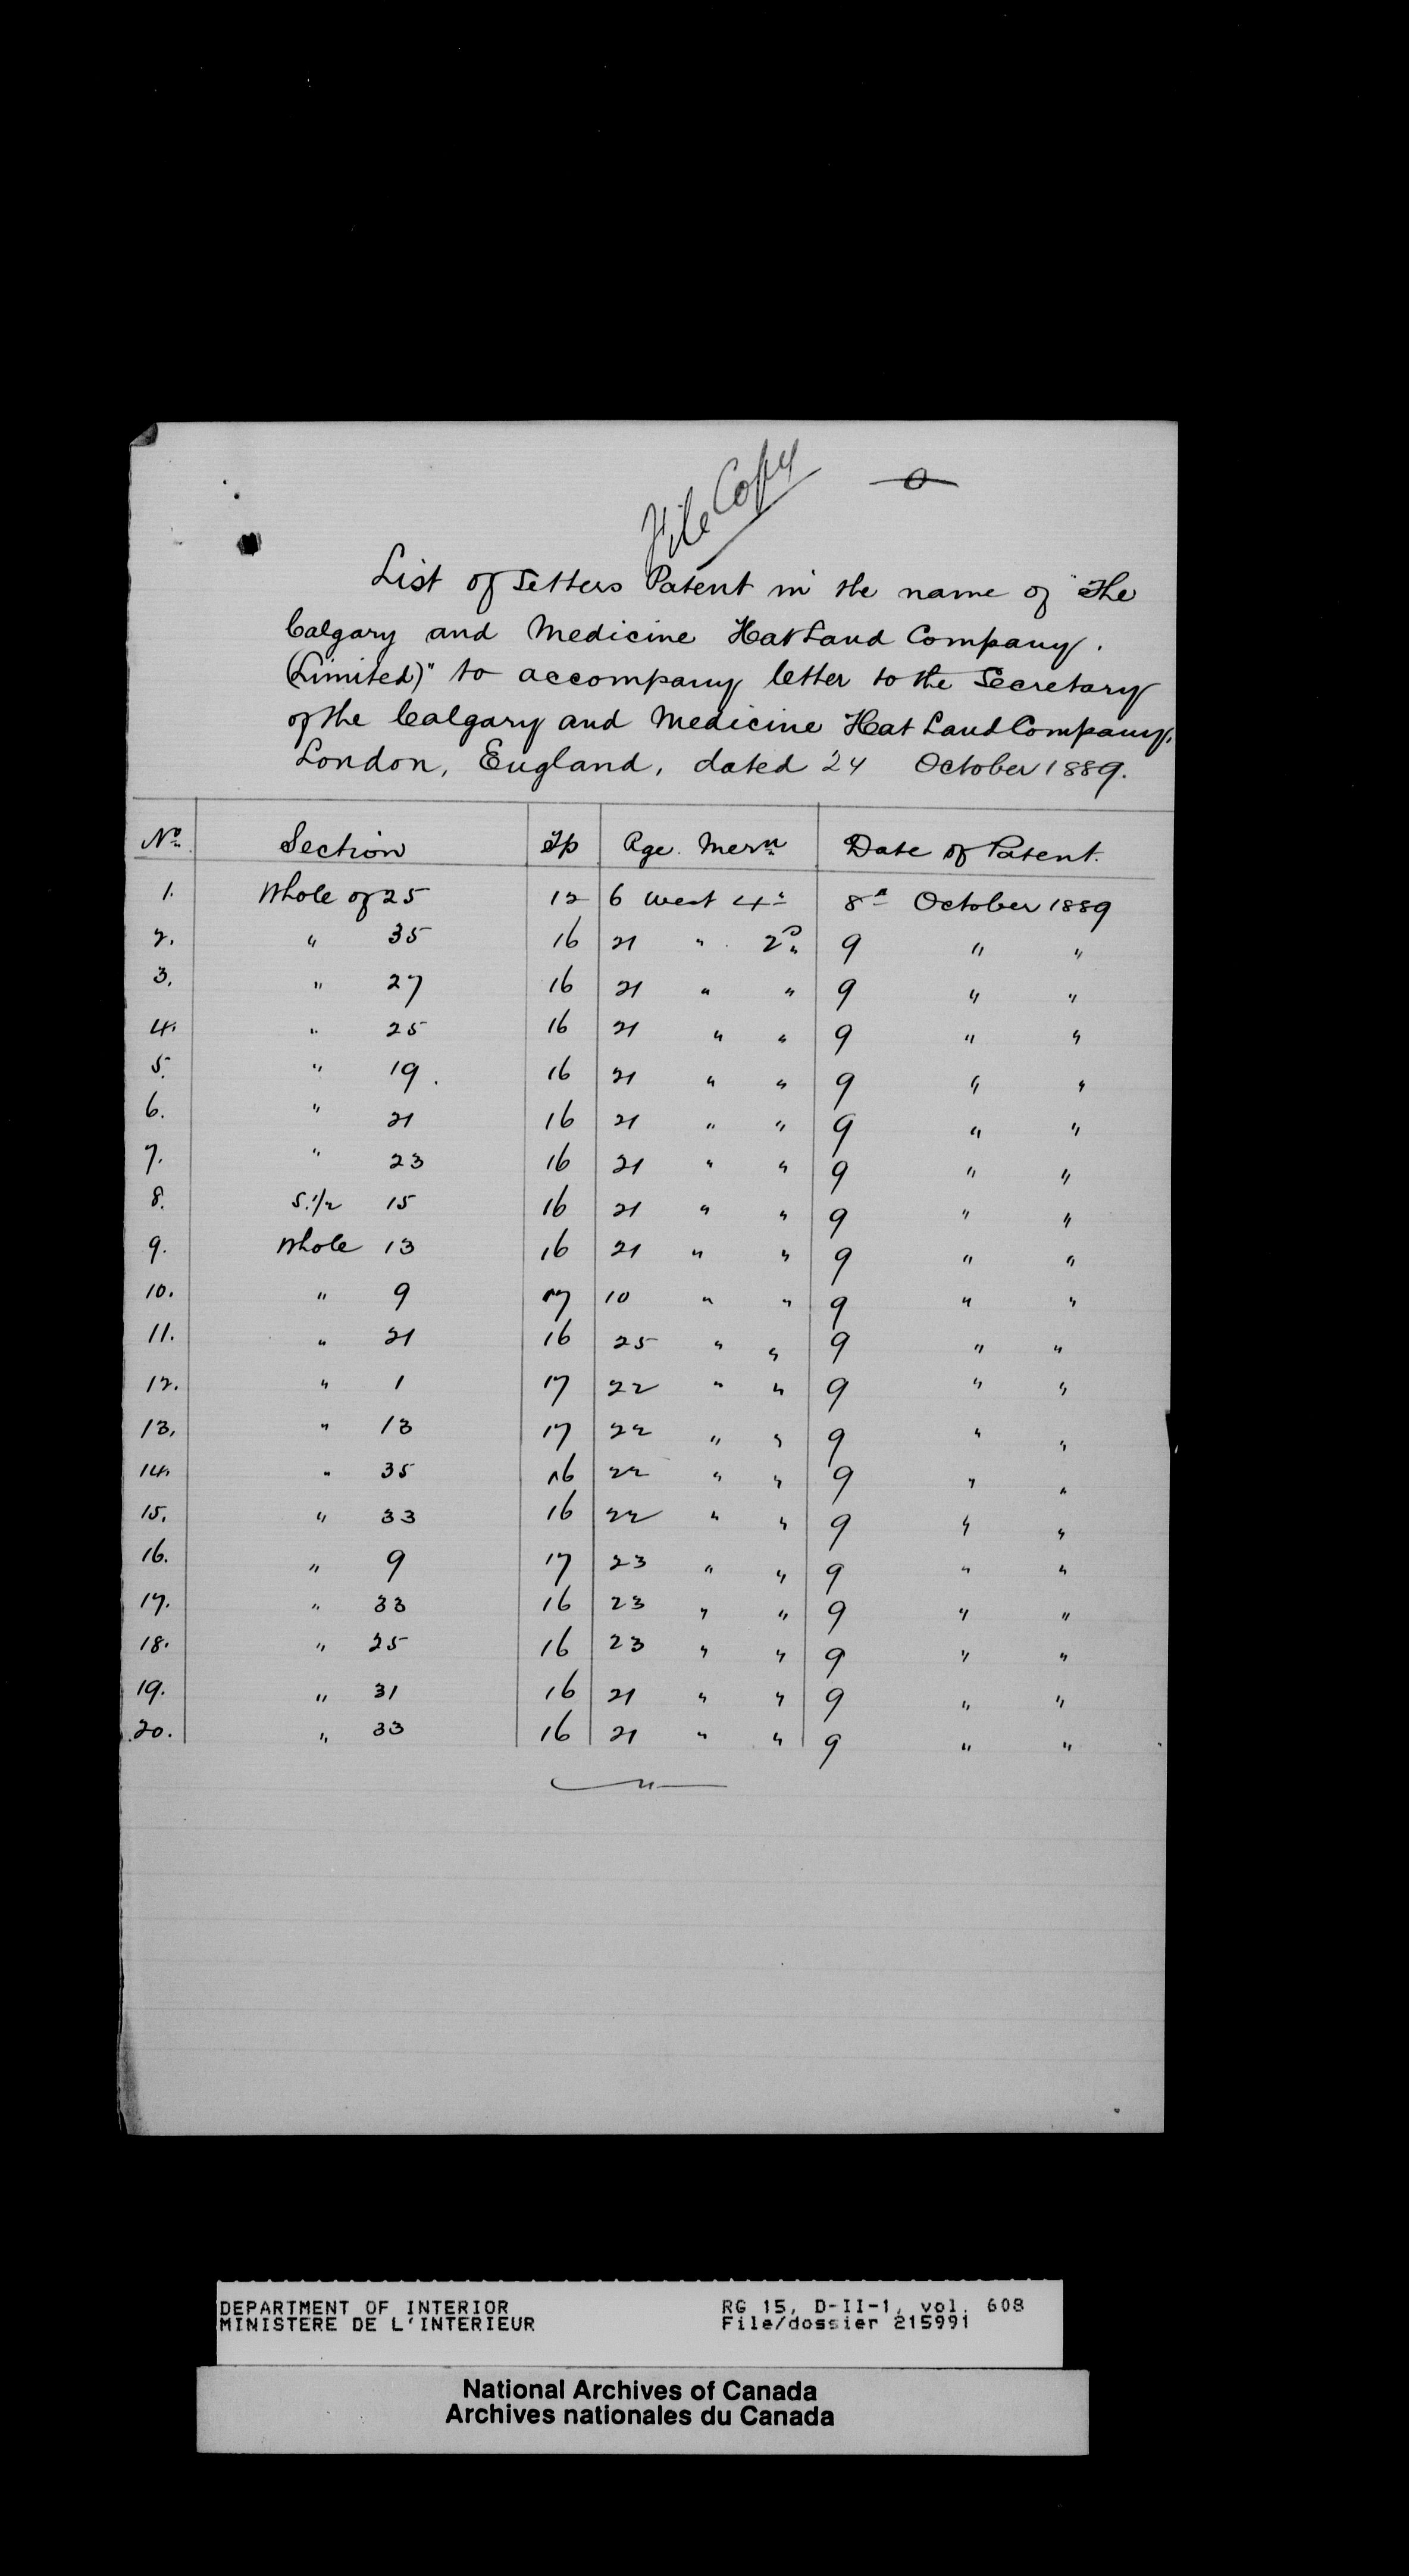 File Copy
List of Letters Patent in the name of "The
Calgary and Medicine Hat Land Company.
(Limited)" to accompany letter to the Secretary
of the Calgary and Medicine Hat Land Company,
London, England, dated 24 October 1889.
No. Section Tp Rge. Mern Date of Patent.
1. Whole of 25 12 6 West 4th 8th October 1889
2. " 35 16 21 " 2nd 9 " "
3. " 27 16 21 " " 9 " "
4. " 25 16 21 " " 9 " "
5. " 19. 16 21 " " 9 " "
6. " 21 16 21 " " 9 " "
7. " 23 16 21 " " 9 " "
8. S. 1/2 15 16 21 " " 9 " "
9. Whole 13 16 21 " " 9 " "
10. " 9 17 10 " " 9 " "
11. " 21 16 25 " " 9 " "
12. " 1 17 22 " " 9 " "
13. " 13 17 22 " " 9 " "
14. " 35 16 22 " " 9 " "
15. " 33 16 22 " " 9 " "
16. " 9 17 23 " " 9 " "
17. " 33 16 23 " " 9 " "
18. " 25 16 23 " " 9 " "
19. " 31 16 21 " " 9 " "
20. " 33 16 21 " " 9 " "
DEPARTMENT OF INTERIOR RG 15, D-II-1, vol. 608
MINISTERE DE L'INTERIEUR File/dossier 215991
National Archives of Canada
Archives nationales du Canada